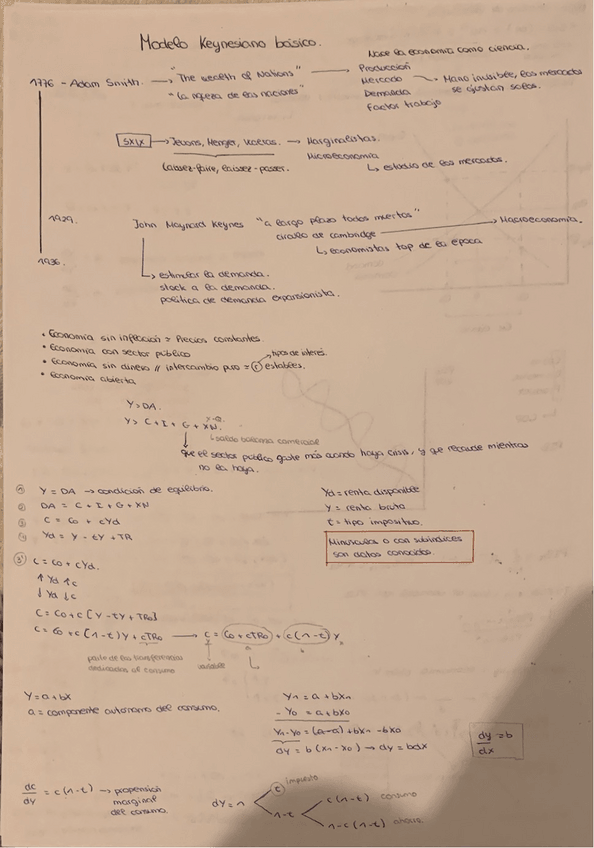 Modelo Keynesiano básico.
Nace la economía como ciencia.
1776 - Adam Smith. → "The wealth of Nations" → Producción
"La riqueza de las naciones" Mercado → Mano invisible, los mercados
Demanda se ajustan solos.
Factor trabajo
SXIX → Jevons, Menger, Walras. → Marginalistas.
Laissez-faire, laissez-passer. Microeconomía
↳ estudio de los mercados.
1929. John Maynard Keynes "a largo plazo todos muertos" → Macroeconomía.
círculo de cambridge
↳ economistas top de la época
1936.
↳ estimular la demanda.
stock a la demanda.
política de demanda expansionista.
• Economía sin inflación = Precios constantes.
• Economía con sector público → tipos de interés.
• Economía sin dinero // intercambio puro = r estables.
• Economía abierta
Y = DA.
Y = C + I + G + XN.
↳ saldo balanza comercial
que el sector público gaste más cuando haya crisis, y que recaude mientras
no la haya.
① Y = DA → condición de equilibrio.
② DA = C + I + G + XN
③ C = Co + cYd
④ Yd = Y - tY + TR
Yd = renta disponible
Y = renta bruta
t = tipo impositivo.
Minúsculas o con subíndices
son datos conocidos.
③' C = Co + cYd.
↑ Yd ↑ c
↓ Yd ↓ c
C = Co + c [Y - tY + TRo]
C = Co + c (1-t)Y + cTRo → C = Co + cTRo + c(1-t) Y
parte de las transferencias
dedicadas al consumo
variable
Y = a + bX
a = componente autónomo del consumo.
Y1 = a + bX1
- Y0 = a + bX0
Y1 - Y0 = (a-a) + bX1 - bX0
dy = b (X1 - X0) → dy = bdx
dy/dx = b
dc/dy = c(1-t) → propensión
marginal
del consumo.
impuesto
dy = 1 t
1-t c(1-t) consumo
1-c(1-t) ahorro